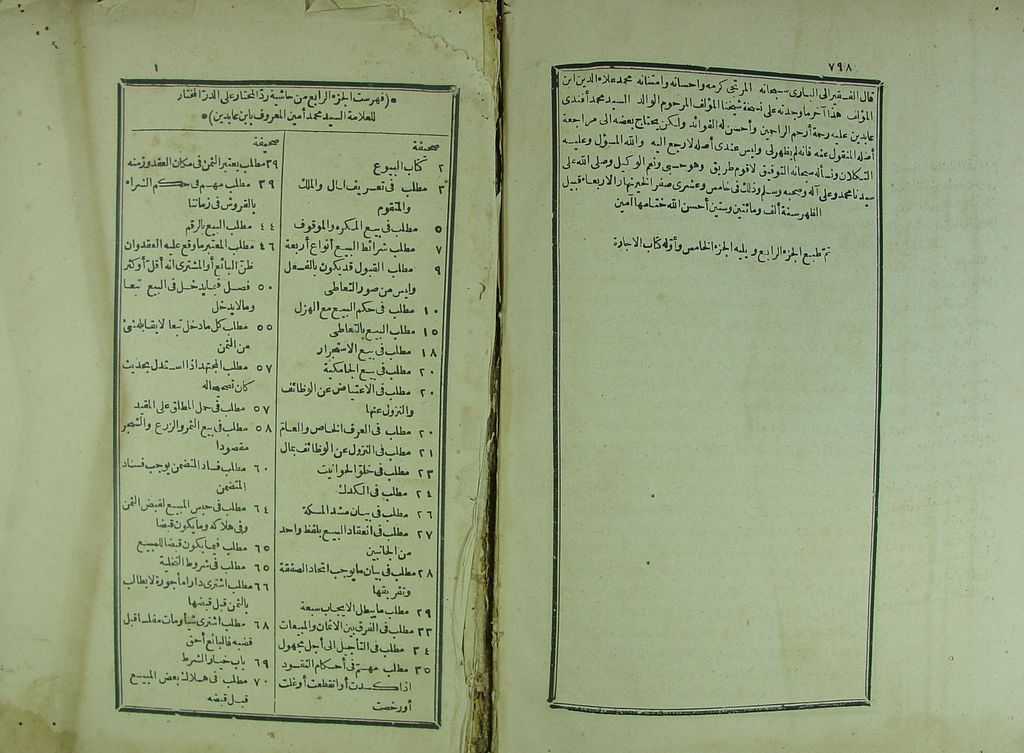 ٧٩٨
قال الفقير الى البارى سبحانه المرتجى كرمه واحسانه وامتنانه محمد علاء الدين ابن
المؤلف هذا آخر ما وجدته على نسخة شيخنا المؤلف المرحوم الوالد السيد محمد أفندى
عابدين عليه رحمة أرحم الراحمين وأحسن له الفوائد ولكن يحتاج بعضه الى مراجعة
أصله المنقول عنه فانه لم يظهر لى وليس عندى أصله لارجع اليه والله المسؤل وعليه
التكلان ونسأله سبحانه التوفيق لاقوم طريق وهو حسبى ونعم الوكيل وصلى الله على
سيدنا محمد وعلى آله وصحبه وسلم وذلك فى خامس وعشرى صفر الخير نهار الاربعاء قبيل
الظهر سنة ألف ومائتين وستين أحسن الله ختامها آمين
تم طبع الجزء الرابع ويليه الجزء الخامس وأوله كتاب الاجارة
١
*(فهرست الجزء الرابع من حاشية رد المحتار على الدر المختار
للعلامة السيد محمد أمين المعروف بابن عابدين)*
صحيفة
٢ كتاب البيوع
٣ مطلب فى تعريف المال والملك
والمتقوم
٥ مطلب فى بيع المكره والموقوف
٧ مطلب شرائط البيع أنواع أربعة
٩ مطلب القبول قد يكون بالفعل
وليس من صور التعاطى
١٠ مطلب فى حكم البيع مع الهزل
١٥ مطلب البيع بالتعاطى
١٨ مطلب فى بيع الاستجرار
٢٠ مطلب فى بيع الجامكية
٢٠ مطلب فى الاعتياض عن الوظائف
والنزول عنها
٢٠ مطلب فى العرف الخاص والعام
٢١ مطلب فى النزول عن الوظائف بمال
٢٣ مطلب فى خلو الحوانيت
٢٤ مطلب فى الكدك
٢٦ مطلب فى بيان مشد المسكة
٢٧ مطلب فى انعقاد البيع بلفظ واحد
من الجانبين
٢٨ مطلب فى بيان ما يوجب اتحاد الصفقة
وتفريقها
٢٩ مطلب ما يبطل الايجاب سبعة
٣٣ مطلب فى الفرق بين الاثمان والمبيعات
٣٤ مطلب فى التأجيل الى أجل مجهول
٣٥ مطلب مهم فى أحكام النقود
اذا كسدت أو انقطعت أو غلت
أو رخصت
صحيفة
٣٩ مطلب يعتبر الثمن فى مكان العقد وزمنه
٣٩ مطلب مهم فى حكم الشراء
بالقروش فى زماننا
٤٤ مطلب البيع بالرقم
٤٦ مطلب المعتبر ما وقع عليه العقد وان
ظن البائع أو المشترى انه أقل أو أكثر
٥٠ فصل فيما يدخل فى البيع تبعا
وما لا يدخل
٥٥ مطلب كل ما دخل تبعا لا يقابله شئ
من الثمن
٥٧ مطلب المجتهد اذا استدل بحديث
كان تصحيحا له
٥٧ مطلب فى حمل المطلق على المقيد
٥٨ مطلب فى بيع الثمر والزرع والشجر
مقصودا
٦٠ مطلب فساد المتضمن يوجب فساد
المتضمن
٦٤ مطلب فى حبس المبيع لقبض الثمن
وفى هلاكه وما يكون قبضا
٦٥ مطلب فيما يكون قبضا للمبيع
٦٥ مطلب فى شروط التخلية
٦٦ مطلب اشترى دارا مأجورة لا يطالب
بالثمن قبل قبضها
٦٨ مطلب اشترى شيأ ومات مفلسا قبل
قبضه فالبائع أحق
٦٩ باب خيار الشرط
٧٠ مطلب فى هلاك بعض المبيع
قبل قبضه